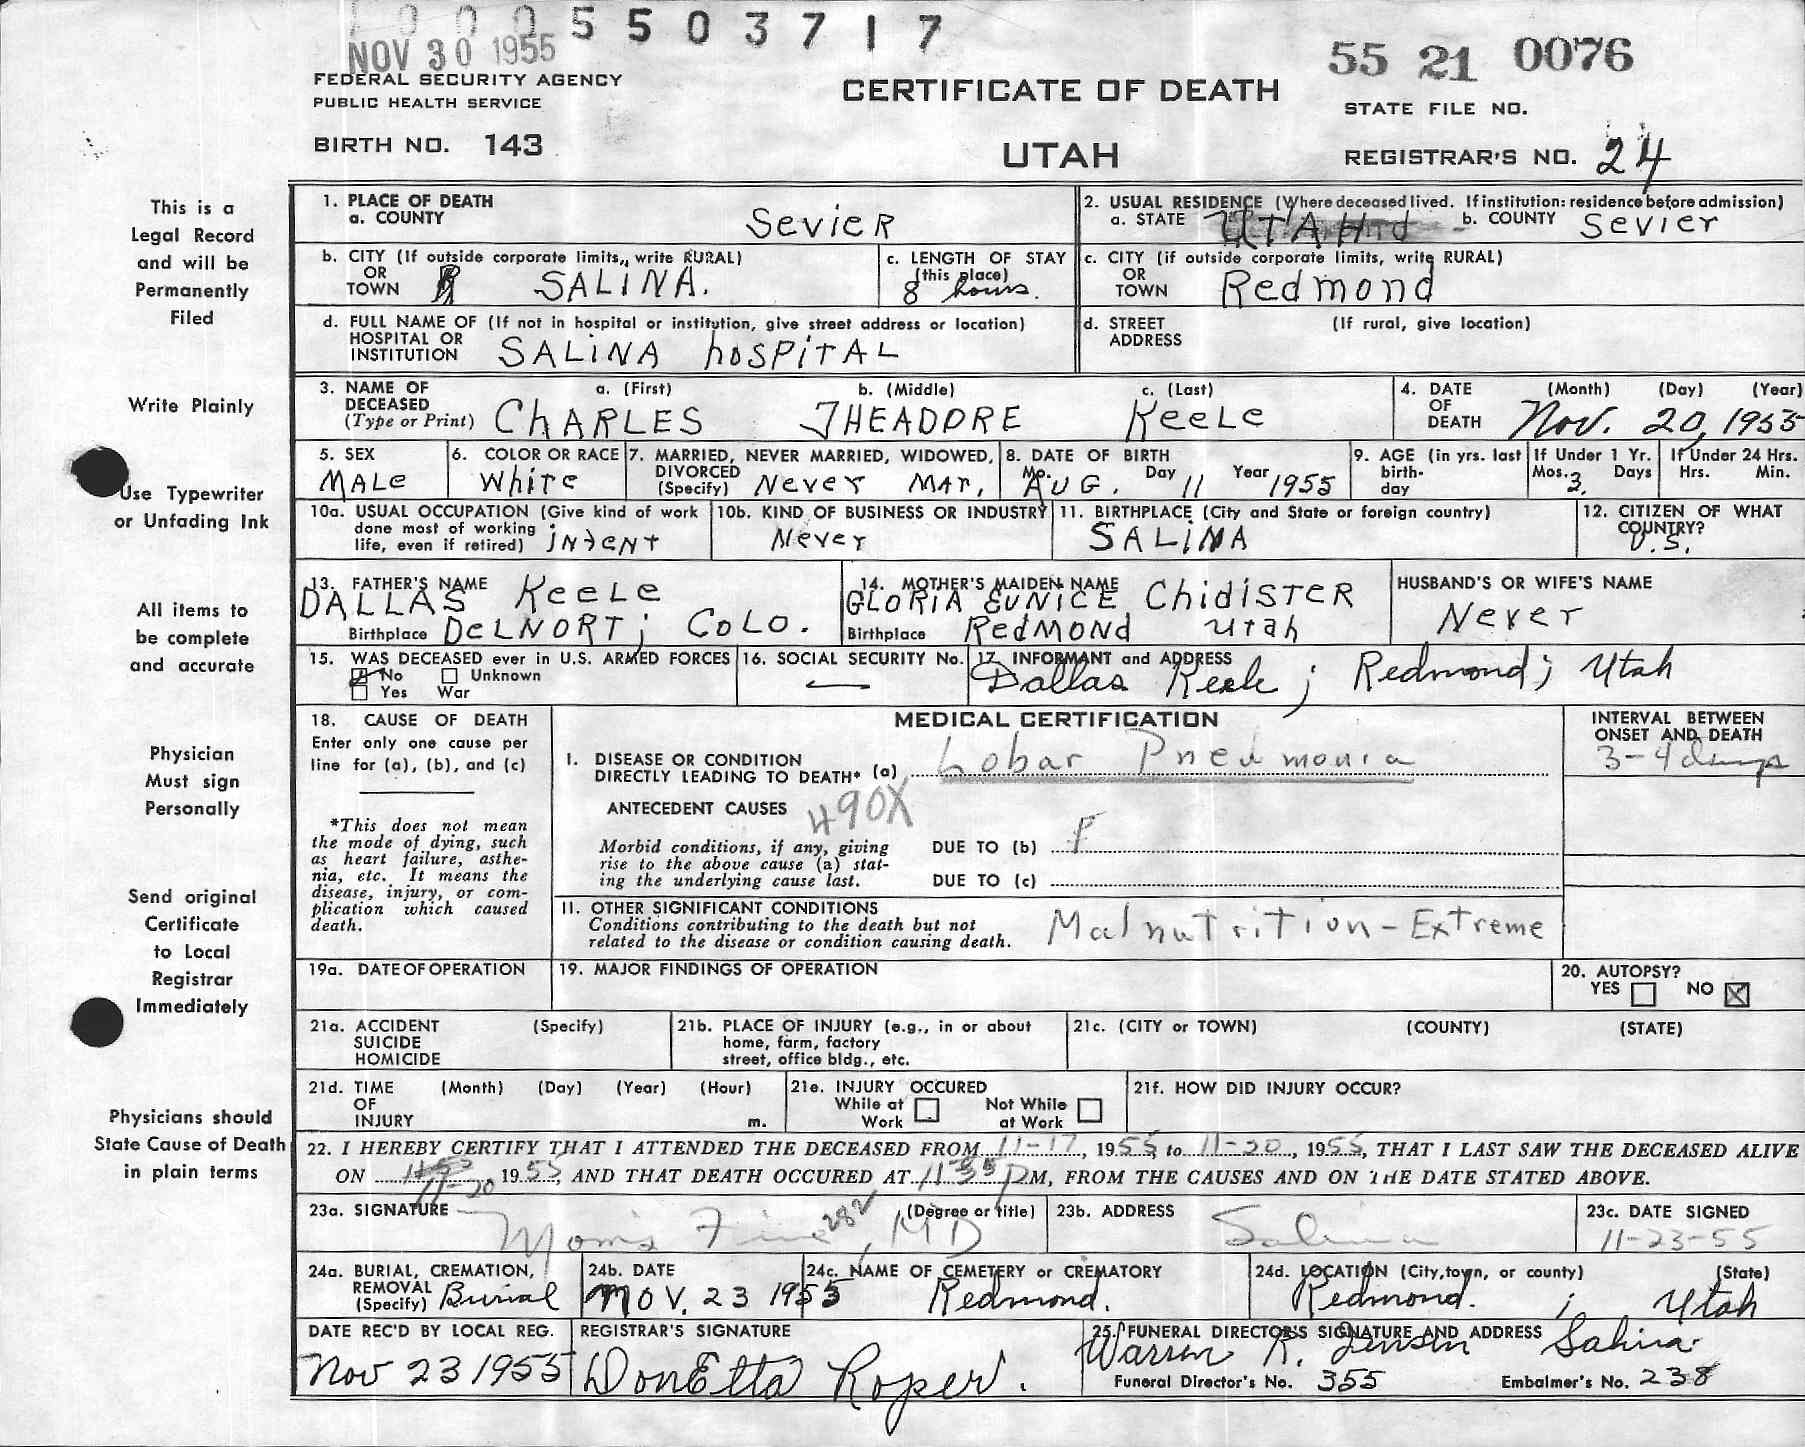 0005503717
NOV 30 1955
55 21 0076
FEDERAL SECURITY AGENCY
PUBLIC HEALTH SERVICE
CERTIFICATE OF DEATH
STATE FILE NO.
BIRTH NO. 143
UTAH
REGISTRAR'S NO. 24
This is a
Legal Record
and will be
Permanently
Filed
Write Plainly
Use Typewriter
or Unfading Ink
All items to
be complete
and accurate
Physician
Must sign
Personally
Send original
Certificate
to Local
Registrar
Immediately
Physicians should
State Cause of Death
in plain terms
1. PLACE OF DEATH
a. COUNTY Sevier
2. USUAL RESIDENCE (Where deceased lived. If institution: residence before admission)
a. STATE UTAH b. COUNTY Sevier
b. CITY (If outside corporate limits, write RURAL)
OR
TOWN SALINA.
c. LENGTH OF STAY
(this place)
8 hours.
c. CITY (if outside corporate limits, write RURAL)
OR
TOWN Redmond
d. FULL NAME OF (If not in hospital or institution, give street address or location)
HOSPITAL OR
INSTITUTION SALINA hoSPITAL
d. STREET (If rural, give location)
ADDRESS
3. NAME OF a. (First) b. (Middle) c. (Last)
DECEASED
(Type or Print) ChARLES THEADORE KeeLe
4. DATE (Month) (Day) (Year)
OF
DEATH Nov. 20, 1955
5. SEX
MALe
6. COLOR OR RACE
White
7. MARRIED, NEVER MARRIED, WIDOWED,
DIVORCED
(Specify) Never Mar,
8. DATE OF BIRTH
Mo. Day Year
AUG. 11 1955
9. AGE (in yrs. last
birth-
day
If Under 1 Yr.
Mos. 3. Days
If Under 24 Hrs.
Hrs. Min.
10a. USUAL OCCUPATION (Give kind of work
done most of working
life, even if retired) iNfeNT
10b. KIND OF BUSINESS OR INDUSTRY
Never
11. BIRTHPLACE (City and State or foreign country)
SALINA
12. CITIZEN OF WHAT
COUNTRY?
U.S.
13. FATHER'S NAME
DALLAS KeeLe
Birthplace DeLNORT; COLO.
14. MOTHER'S MAIDEN NAME
GLORIA EUNICE ChidisTER
Birthplace RedMOND Utah
HUSBAND'S OR WIFE'S NAME
Never
15. WAS DECEASED ever in U.S. ARMED FORCES
No Unknown
Yes War
16. SOCIAL SECURITY No.
—
17. INFORMANT and ADDRESS
Dallas Keele; Redmond; Utah
18. CAUSE OF DEATH
Enter only one cause per
line for (a), (b), and (c)
*This does not mean
the mode of dying, such
as heart failure, asthe-
nia, etc. It means the
disease, injury, or com-
plication which caused
death.
MEDICAL CERTIFICATION
I. DISEASE OR CONDITION
DIRECTLY LEADING TO DEATH* (a) Lobar Pneumonia
ANTECEDENT CAUSES 490X
Morbid conditions, if any, giving
rise to the above cause (a) stat-
ing the underlying cause last.
DUE TO (b) F
DUE TO (c)
II. OTHER SIGNIFICANT CONDITIONS
Conditions contributing to the death but not
related to the disease or condition causing death.
Malnutrition - Extreme
INTERVAL BETWEEN
ONSET AND DEATH
3-4 days
19a. DATE OF OPERATION
19. MAJOR FINDINGS OF OPERATION
20. AUTOPSY?
YES NO
21a. ACCIDENT (Specify)
SUICIDE
HOMICIDE
21b. PLACE OF INJURY (e.g., in or about
home, farm, factory
street, office bldg., etc.
21c. (CITY or TOWN) (COUNTY) (STATE)
21d. TIME (Month) (Day) (Year) (Hour)
OF
INJURY m.
21e. INJURY OCCURED
While at Work Not While at Work
21f. HOW DID INJURY OCCUR?
22. I HEREBY CERTIFY THAT I ATTENDED THE DECEASED FROM 11-17, 1955 to 11-20, 1955, THAT I LAST SAW THE DECEASED ALIVE
ON 11-20 1955, AND THAT DEATH OCCURED AT 11 35 PM, FROM THE CAUSES AND ON THE DATE STATED ABOVE.
23a. SIGNATURE (Degree or title)
Morris Fine 282, MD
23b. ADDRESS
Salina
23c. DATE SIGNED
11-23-55
24a. BURIAL, CREMATION,
REMOVAL
(Specify) Burial
24b. DATE
Nov. 23 1955
24c. NAME OF CEMETERY or CREMATORY
Redmond.
24d. LOCATION (City, town, or county) (State)
Redmond. ; Utah
DATE REC'D BY LOCAL REG.
Nov 23 1955
REGISTRAR'S SIGNATURE
DonEtta Roper.
25. FUNERAL DIRECTOR'S SIGNATURE AND ADDRESS
Warren R. Jensen Salina.
Funeral Director's No. 355 Embalmer's No. 238